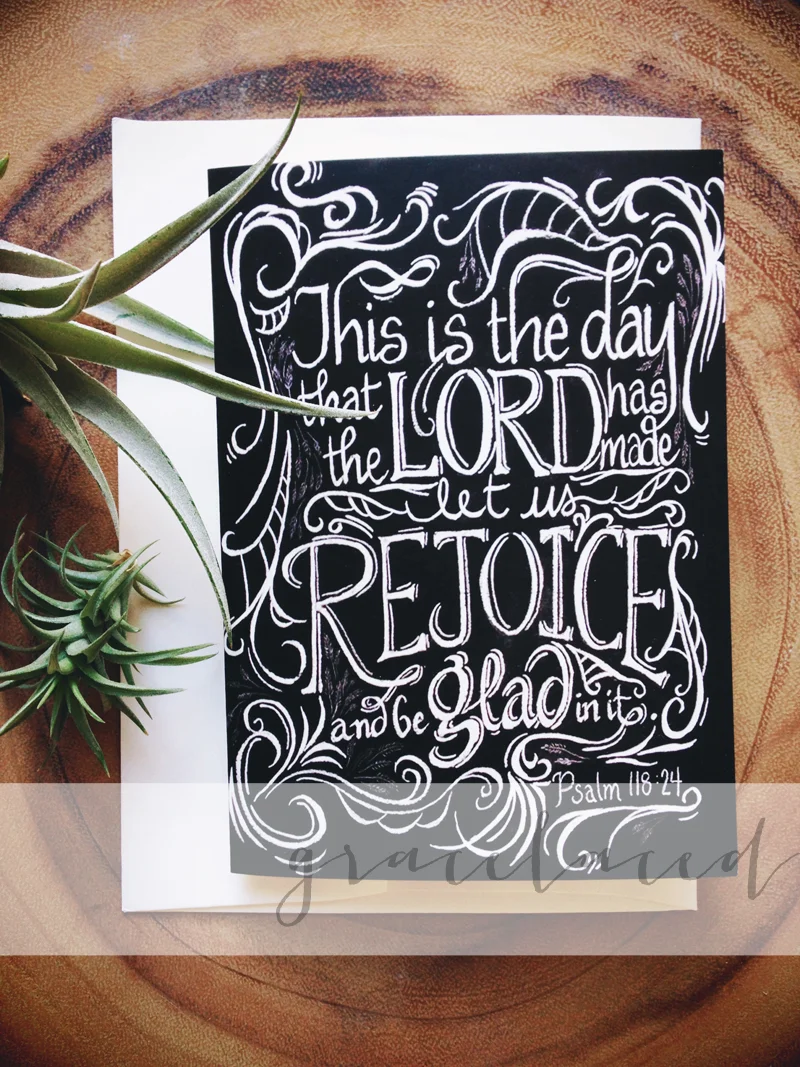 This is the day
that LORD has
the made
let us
REJOICE
and be glad in it.
Psalm 118:24
gracelaced